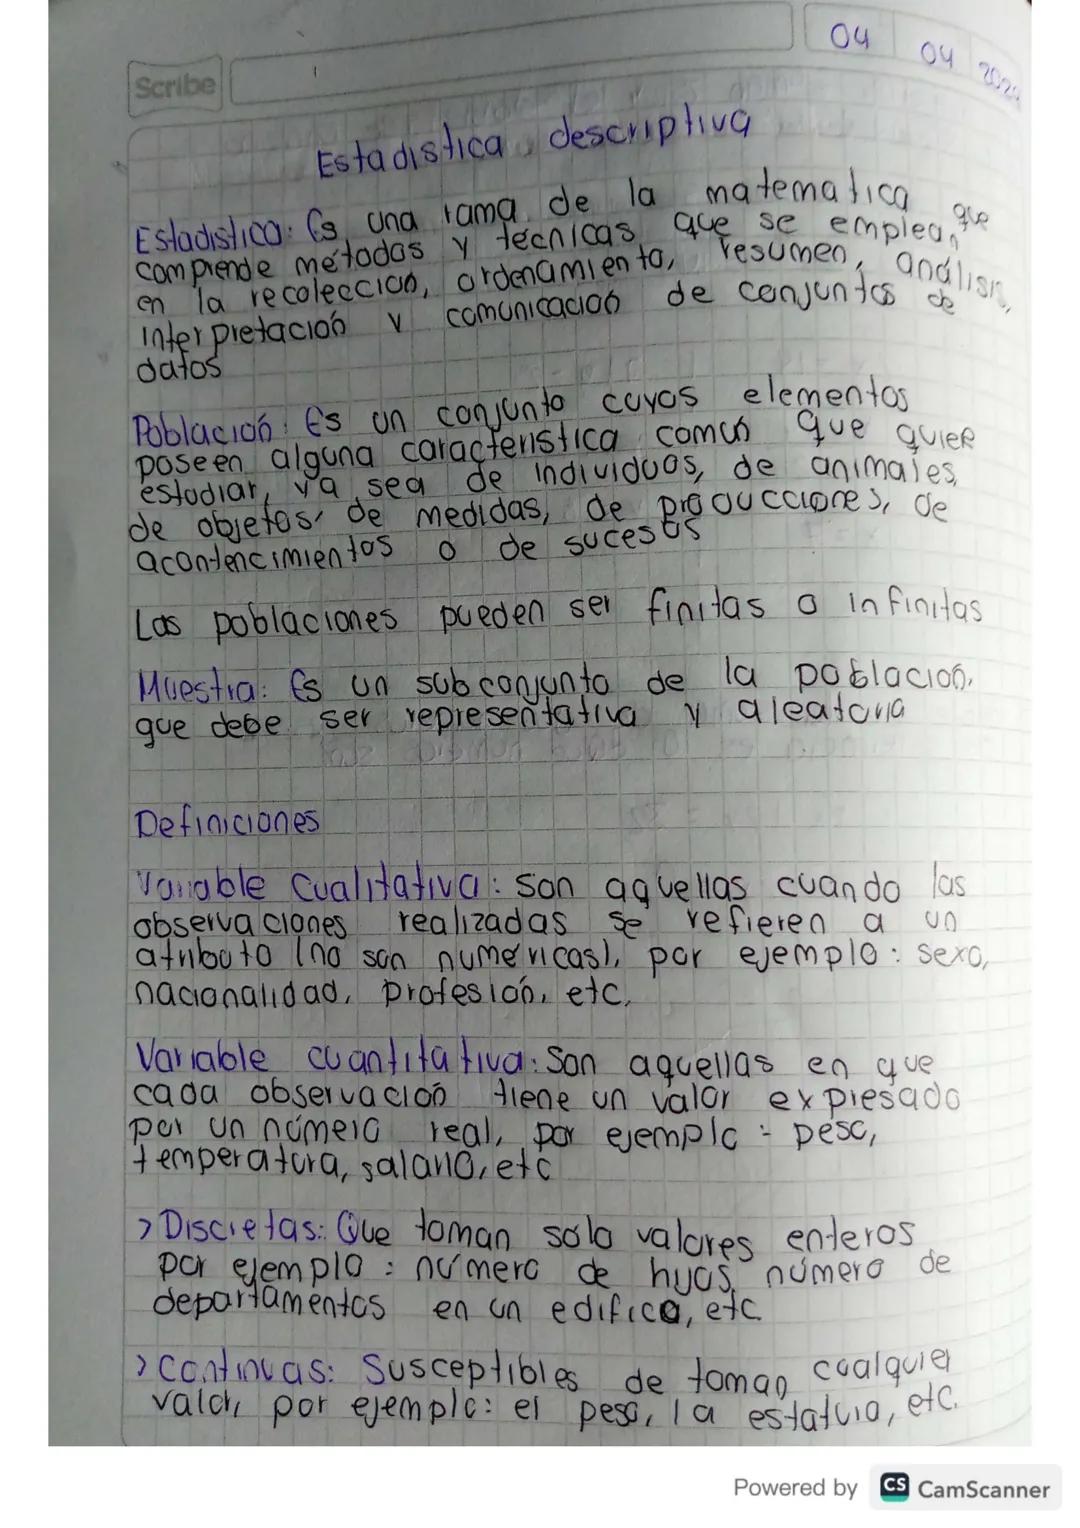 04 04 2024
Scribe
Estadistica descriptiva
Estadistica: Es una rama de la matematica que
comprende métodos y técnicas que se emplean
en la recoleccion, ordenamiento, resumen, análisis,
interpretación y comunicación de conjuntos de
datos
Población: Es un conjunto cuyos elementos
poseen alguna característica común que quier
estudiar, ya sea de individuos, de animales,
de objetos, de medidas, de producciones, de
acontencimientos o de sucesos
Las poblaciones pueden ser finitas o infinitas
Muestra: Es un subconjunto de la población,
que debe ser representativa y aleatoria
Definiciones
Variable Cualitativa: son aquellas cuando las
observaciones realizadas se refieren a un
atributo (no son numéricas), por ejemplo: sexo,
nacionalidad, profesión, etc,
Variable cuantitativa: Son aquellas en que
cada observación tiene un valor expresado
por un número real, por ejemplo: peso,
temperatura, salario, etc
> Discretas: Que toman solo valores enteros
por ejemplo: número de hijos, número de
departamentos en un edifico, etc
> Continuas: Susceptibles de toman cualquier
valor, por ejemplo: el peso, la estatura, etc.
Powered by CS CamScanner